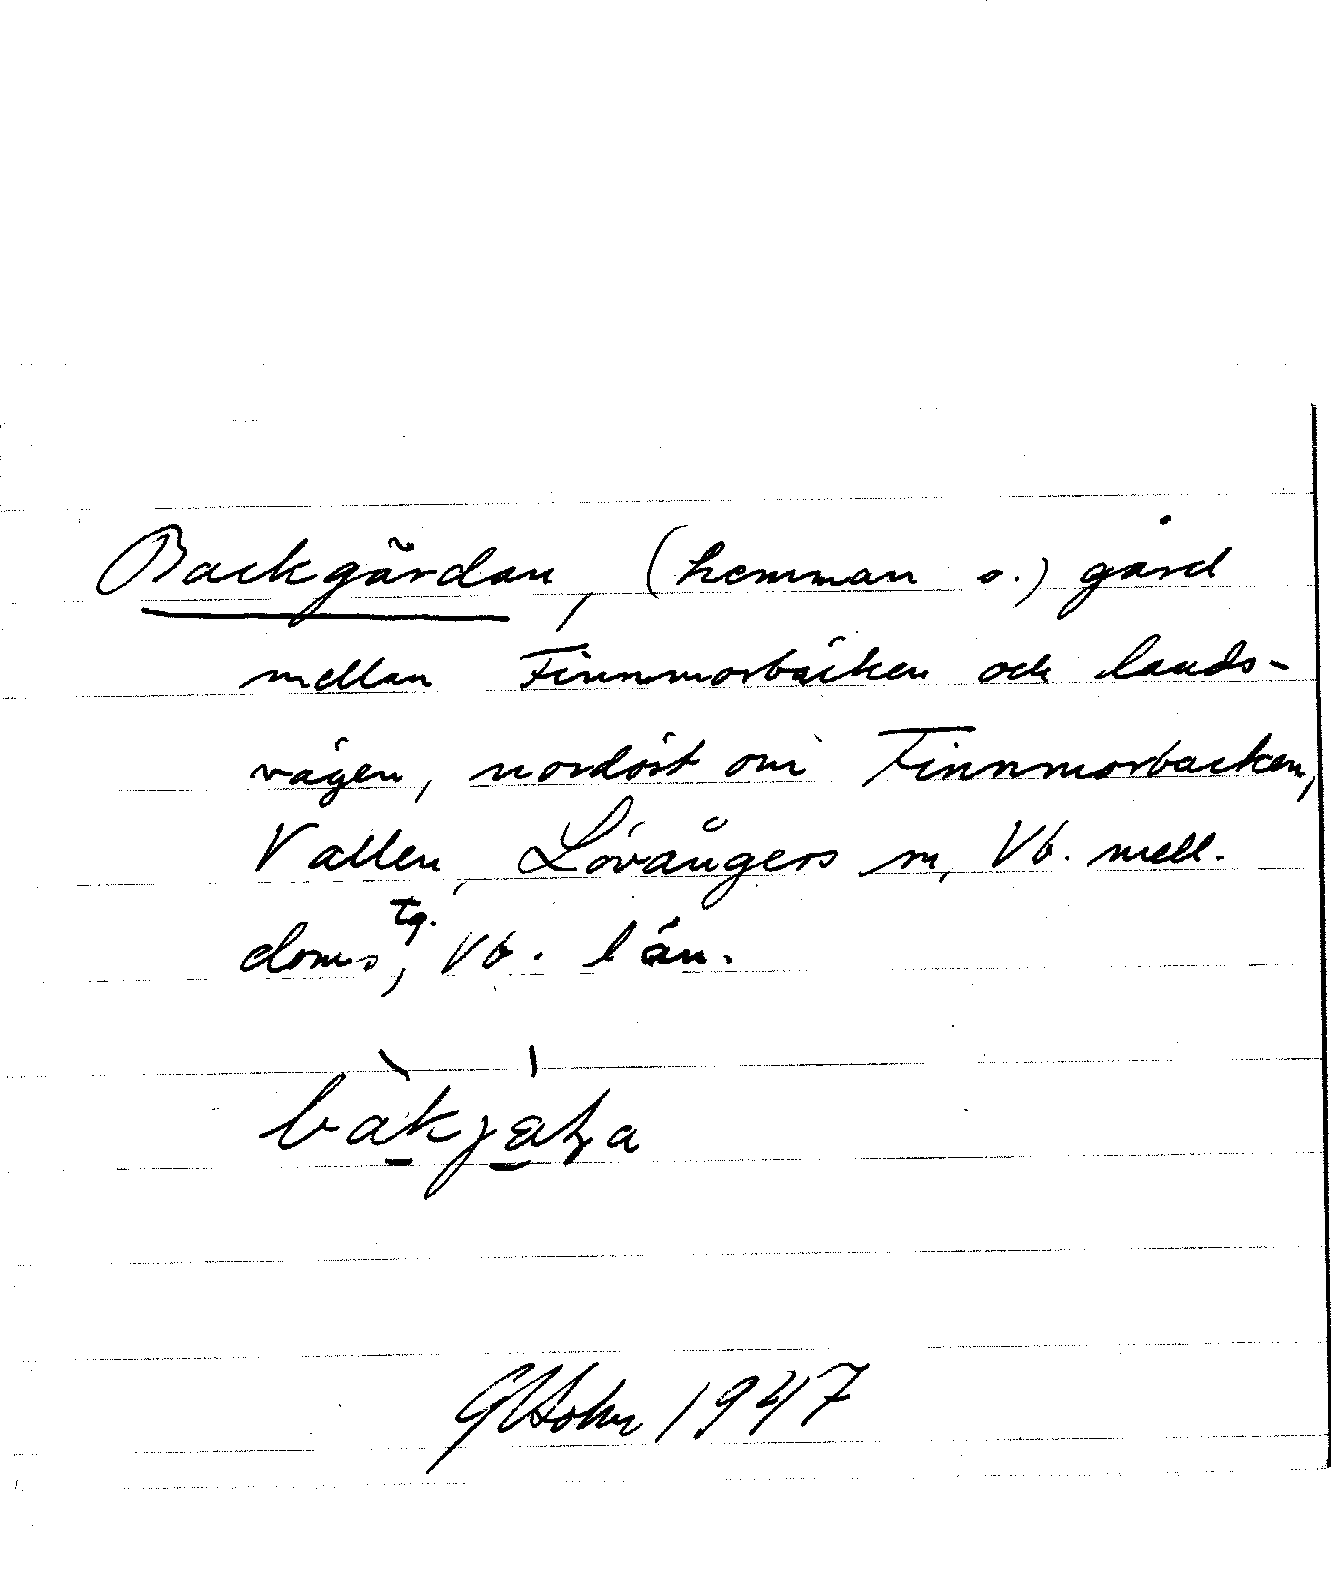 Backgärdan, (hemman o.) gård
mellan Finnmorbäcken och lands-
vägen, nordöst om Finnmorbacken,
Vallen, Lövångers sn, Vb. mell.
doms tg., Vb. län.
1947